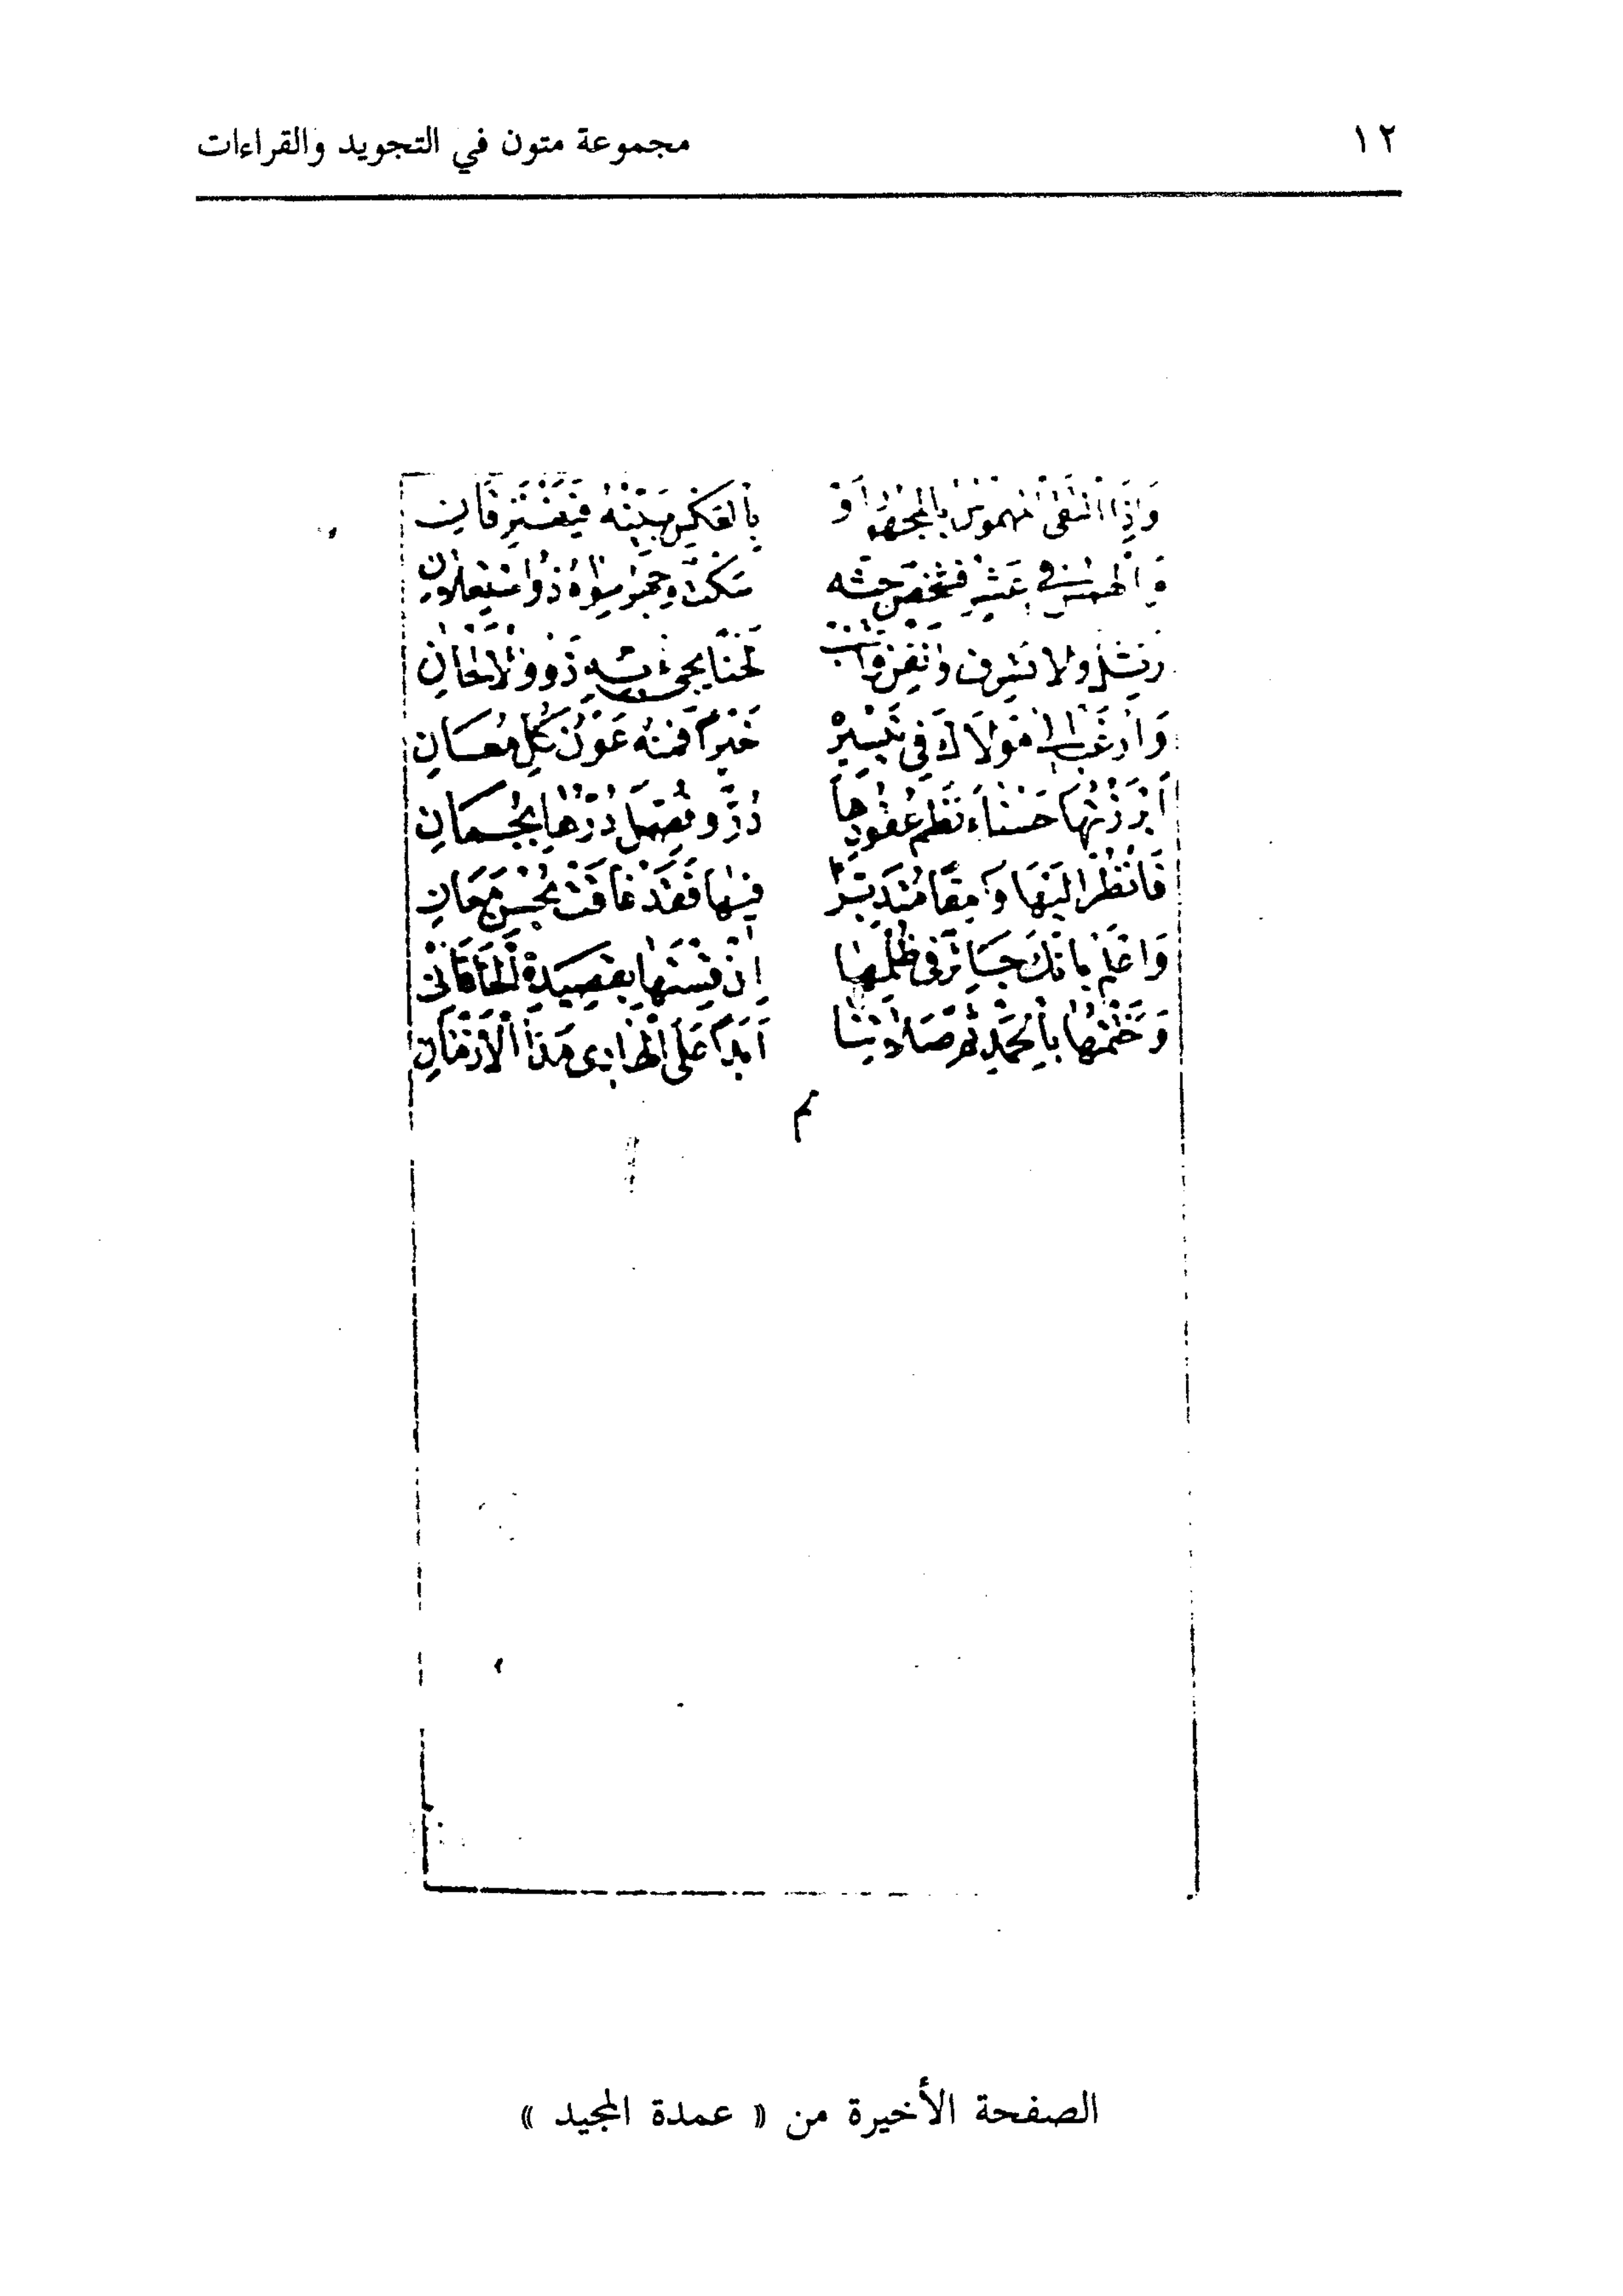 ١٢ مجموعة متون في التجويد والقراءات
وَإِذَا الْتَقَى الْمَهْمُوسُ بِالْمَجْهُورِ أَوْ بِالْعَكْسِ بَيِّنْهُ فَيَفْتَرِقَانِ
وَالْهَمْسُ فِي عَشْرٍ فَشَخْصٌ حَثَّهُ سَكَتَ وَجَهْرُ سِوَاهُ ذُو اسْتِعْلَانِ
رَتِّلْ وَلَا تُسْرِفْ وَأَتْقِنْ وَاجْتَنِبْ لَحْنًا يَجِيءُ بِهِ ذَوُو الْأَلْحَانِ
وَارْغَبْ إِلَى مَوْلَاكَ فِي تَيْسِيرِهِ خَيْرًا فَمِنْهُ عَوْنُ كُلِّ مُعَانِ
أَبْرَزْتُهَا حَسْنَاءَ نَظْمُ عُقُودِهَا دُرٌّ وَفُصِّلَ دُرُّهَا بِجُمَانِ
فَانْظُرْ إِلَيْهَا وَامِقًا مُتَدَبِّرًا فِيهَا فَقَدْ فَاقَتْ بِحُسْنِ مَعَانِ
وَاعْلَمْ بِأَنَّكَ جَائِرٌ فِي ظُلْمِهَا إِنْ قِسْتَهَا بِقَصِيدَةِ الْخَاقَانِي
وَخَتَمْتُهَا بِالْحَمْدِ ثُمَّ صَلَاتِنَا أَبَدًا عَلَى الْهَادِي مَدَا الْأَزْمَانِ
تم
الصفحة الأخيرة من « عمدة المجيد »